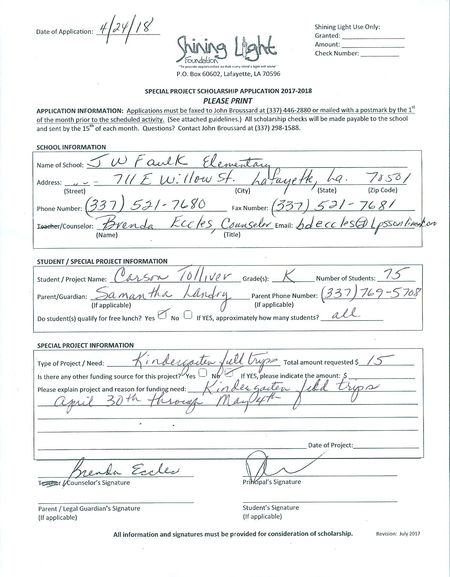 Date of Application: 4/24/18
Shining Light
Foundation
P.O. Box 60602, Lafayette, LA 70596
Shining Light Use Only:
Granted:
Amount:
Check Number:
SPECIAL PROJECT SCHOLARSHIP APPLICATION 2017-2018
PLEASE PRINT
APPLICATION INFORMATION: Applications must be faxed to John Broussard at (337) 446-2880 or mailed with a postmark by the 1st
of the month prior to the scheduled activity. (See attached guidelines.) All scholarship checks will be made payable to the school
and sent by the 15th of each month. Questions? Contact John Broussard at (337) 298-1588.
SCHOOL INFORMATION
Name of School: J W Faulk Elementary
Address: 711 E Willow St. Lafayette, La. 70501
(Street) (City) (State) (Zip Code)
Phone Number: (337) 521-7680 Fax Number: (337) 521-7681
Teacher/Counselor: Brenda Eccles, Counselor Email:
(Name) (Title)
STUDENT / SPECIAL PROJECT INFORMATION
Student / Project Name: Carson Tolliver Grade(s): K Number of Students: 75
Parent/Guardian: Samantha Landry Parent Phone Number: (337) 769-5708
(If applicable) (If applicable)
Do student(s) qualify for free lunch? Yes No If YES, approximately how many students? all
SPECIAL PROJECT INFORMATION
Type of Project / Need: Kindergarten field trips Total amount requested $ 15
Is there any other funding source for this project? Yes No If YES, please indicate the amount: $
Please explain project and reason for funding need: Kindergarten field trips
April 30th through May 4th
Date of Project:
Brenda Eccles
Teacher/Counselor's Signature Principal's Signature
Parent / Legal Guardian's Signature Student's Signature
(If applicable) (If applicable)
All information and signatures must be provided for consideration of scholarship. Revision: July 2017